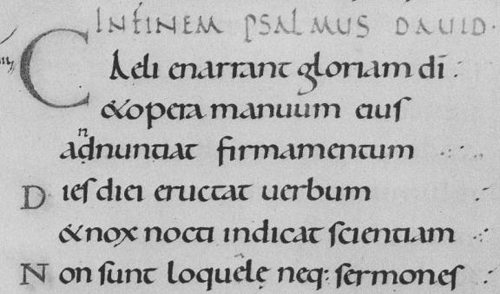 IN FINEM PSALMUS DAUID·
Caeli enarrant gloriam dī :
& opera manuum eius
adnuntiat firmamentum
Dies diei eructat uerbum
& nox nocti indicat scientiam
Non sunt loquelę neq: sermones